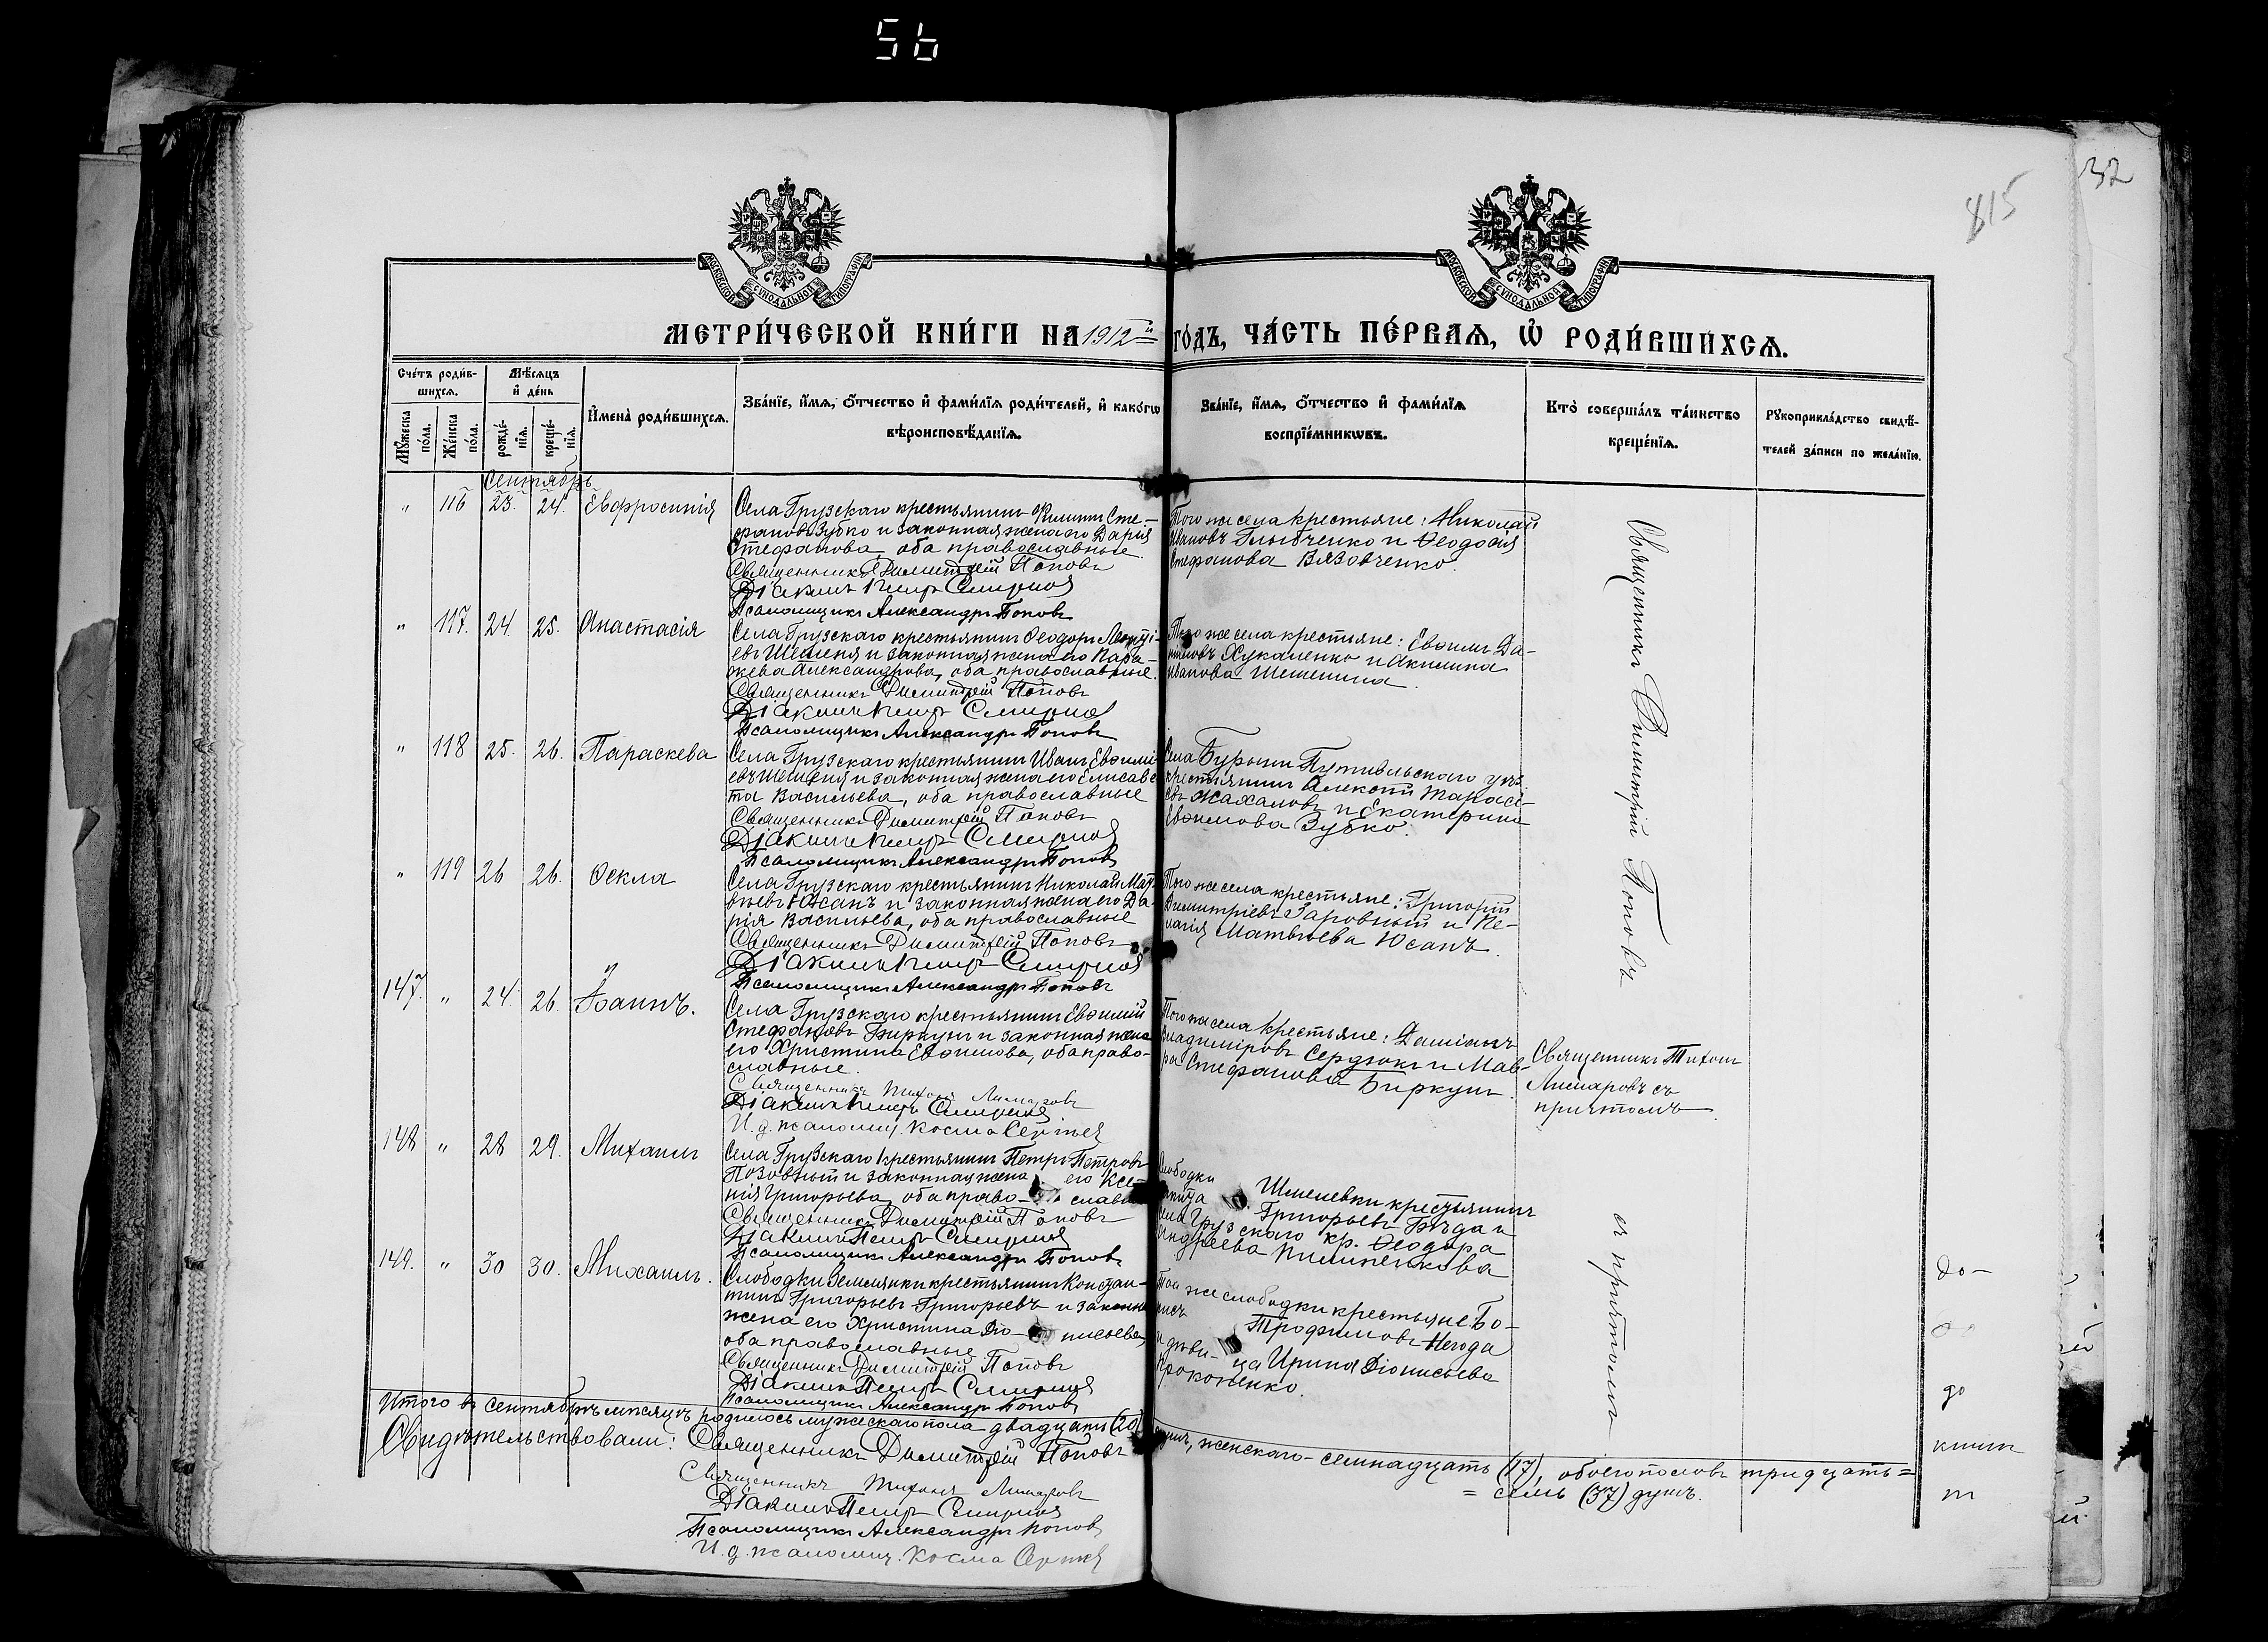 56
32
815
МОСКОВСКОЙ СУНОДАЛЬНОЙ ТИПОГРАФІИ
МОСКОВСКОЙ СУНОДАЛЬНОЙ ТИПОГРАФІИ
МЕТРИ́ЧЕСКОЙ КНИ́ГИ НА 1912й ГО́ДЪ, ЧА́СТЬ ПЕ́РВАѦ, Ѡ҆ РОДИ́ВШИХСѦ.
Сче́тъ роди́в-
шихсѧ.
Мꙋ́жеска по́ла.
Же́нска по́ла.
Мѣ́сѧцъ
и҆ де́нь
рожде́-
нїѧ.
креще́-
нїѧ.
И҆мена̀ роди́вшихсѧ.
Зва́нїе, и҆́мѧ, ѻ҆́тчество и҆ фами́лїѧ роди́телей, и҆ како́гѡ
вѣроисповѣ́данїѧ.
Зва́нїе, и҆́мѧ, ѻ҆́тчество и҆ фами́лїѧ
воспрїе́мникѡвъ.
Кто̀ соверша́лъ та́инство
креще́нїѧ.
Рꙋкоприкла́дство свидѣ́-
телей за́писи по жела́нїю.
Сентябрь
" 116 23. 24. Евфросинія
Села Грузскаго крестьянинъ Филиппъ Сте-
фановъ Зубко и законная жена его Дарія
Стефанова, оба православные.
Священникъ Димитрій Поповъ
Діаконъ Петръ Смирнов
Псаломщикъ Александръ Поповъ
Того же села крестьяне: Николай
Ивановъ Глыбченко и Ѳеодосія
Стефанова Вязовченко.
Священникъ Димитрій Поповъ
" 117. 24. 25. Анастасія
Села Грузскаго крестьянинъ Ѳеодоръ Леонті-
евъ Шешеня и законная жена его Пара-
скева Александрова, оба православные.
Священникъ Димитрій Поповъ
Діаконъ Петръ Смирнов
Псаломщикъ Александръ Поповъ
Того же села крестьяне: Евѳимъ Да-
ниловъ Хукаленко и Акилина
Иванова Шешенина.
" 118 25. 26. Параскева
Села Грузскаго крестьянинъ Иванъ Евѳимі-
евъ Шешеня и законная жена его Елисаве-
та Васильева, оба православные
Священникъ Димитрій Поповъ
Діаконъ Петръ Смирнов
Псаломщикъ Александръ Поповъ
Села Бурыни Путивльскаго уѣз.
крестьянинъ Алексѣй Тарасі-
евъ Жахаловъ и Екатерина
Евѳимова Зубко.
" 119 26 26. Ѳекла
Села Грузскаго крестьянинъ Николай Мат-
вѣевъ Юсанъ и законная жена его Да-
рія Васильева, оба православные
Священникъ Димитрій Поповъ
Діаконъ Петръ Смирнов
Псаломщикъ Александръ Поповъ
Того же села крестьяне: Григорій
Димитріевъ Яровный и Пе-
лагія Матвѣева Юсанъ.
147. " 24. 26. Іоаннъ.
Села Грузскаго крестьянинъ Евѳимій
Стефановъ Биркунъ и законная жена
его Христина Евѳимова, оба право-
славные.
Священникъ Тихонъ Лимаровъ
Діаконъ Петръ Смирнов
И. д. псаломщ. Косма
Того же села крестьяне: Даміанъ
Владиміровъ Сердюкъ и Мав-
ра Стефанова Биркунъ.
Священникъ Тихонъ
Лимаровъ съ
причтомъ
148 " 28 29. Михаилъ
Села Грузскаго крестьянинъ Петръ Петровъ
Позовный и законная жена его Ксе-
нія Григорьева, оба право- славн
Священникъ Димитрій Поповъ
Діаконъ Петръ Смирнов
Псаломщикъ Александръ Поповъ
Слободки Шмелевки крестьянинъ
Григорьевъ Бѣда и
села Грузскаго кр. Ѳеодора
Андреева Пилипенкова
съ причтомъ
149. " 30 30. Михаилъ.
Слободки Землянки крестьянинъ Констан-
тинъ Григорьевъ Григорьевъ и законн
жена его Христина Діо- нисьева,
оба православные
Священникъ Димитрій Поповъ
Діаконъ Петръ Смирнов
Псаломщикъ Александръ Поповъ
Той же слободки крестьяне Бо-
рисъ Трофимовъ Негода
и дѣви- ца Ирина Діонисьева
Прокопенко.
Итого въ сентябрѣ мѣсяцѣ родилось мужескаго пола двадцать (20) душъ, женскаго - семнадцать (17), обоего половъ тридцать =
= семь (37) душъ.
Свидѣтельствовали: Священникъ Димитрій Поповъ
Священникъ Тихонъ Лимаровъ
Діаконъ Петръ Смирнов
Псаломщикъ Александръ Поповъ
И. д. псаломщ. Косма
до-
до